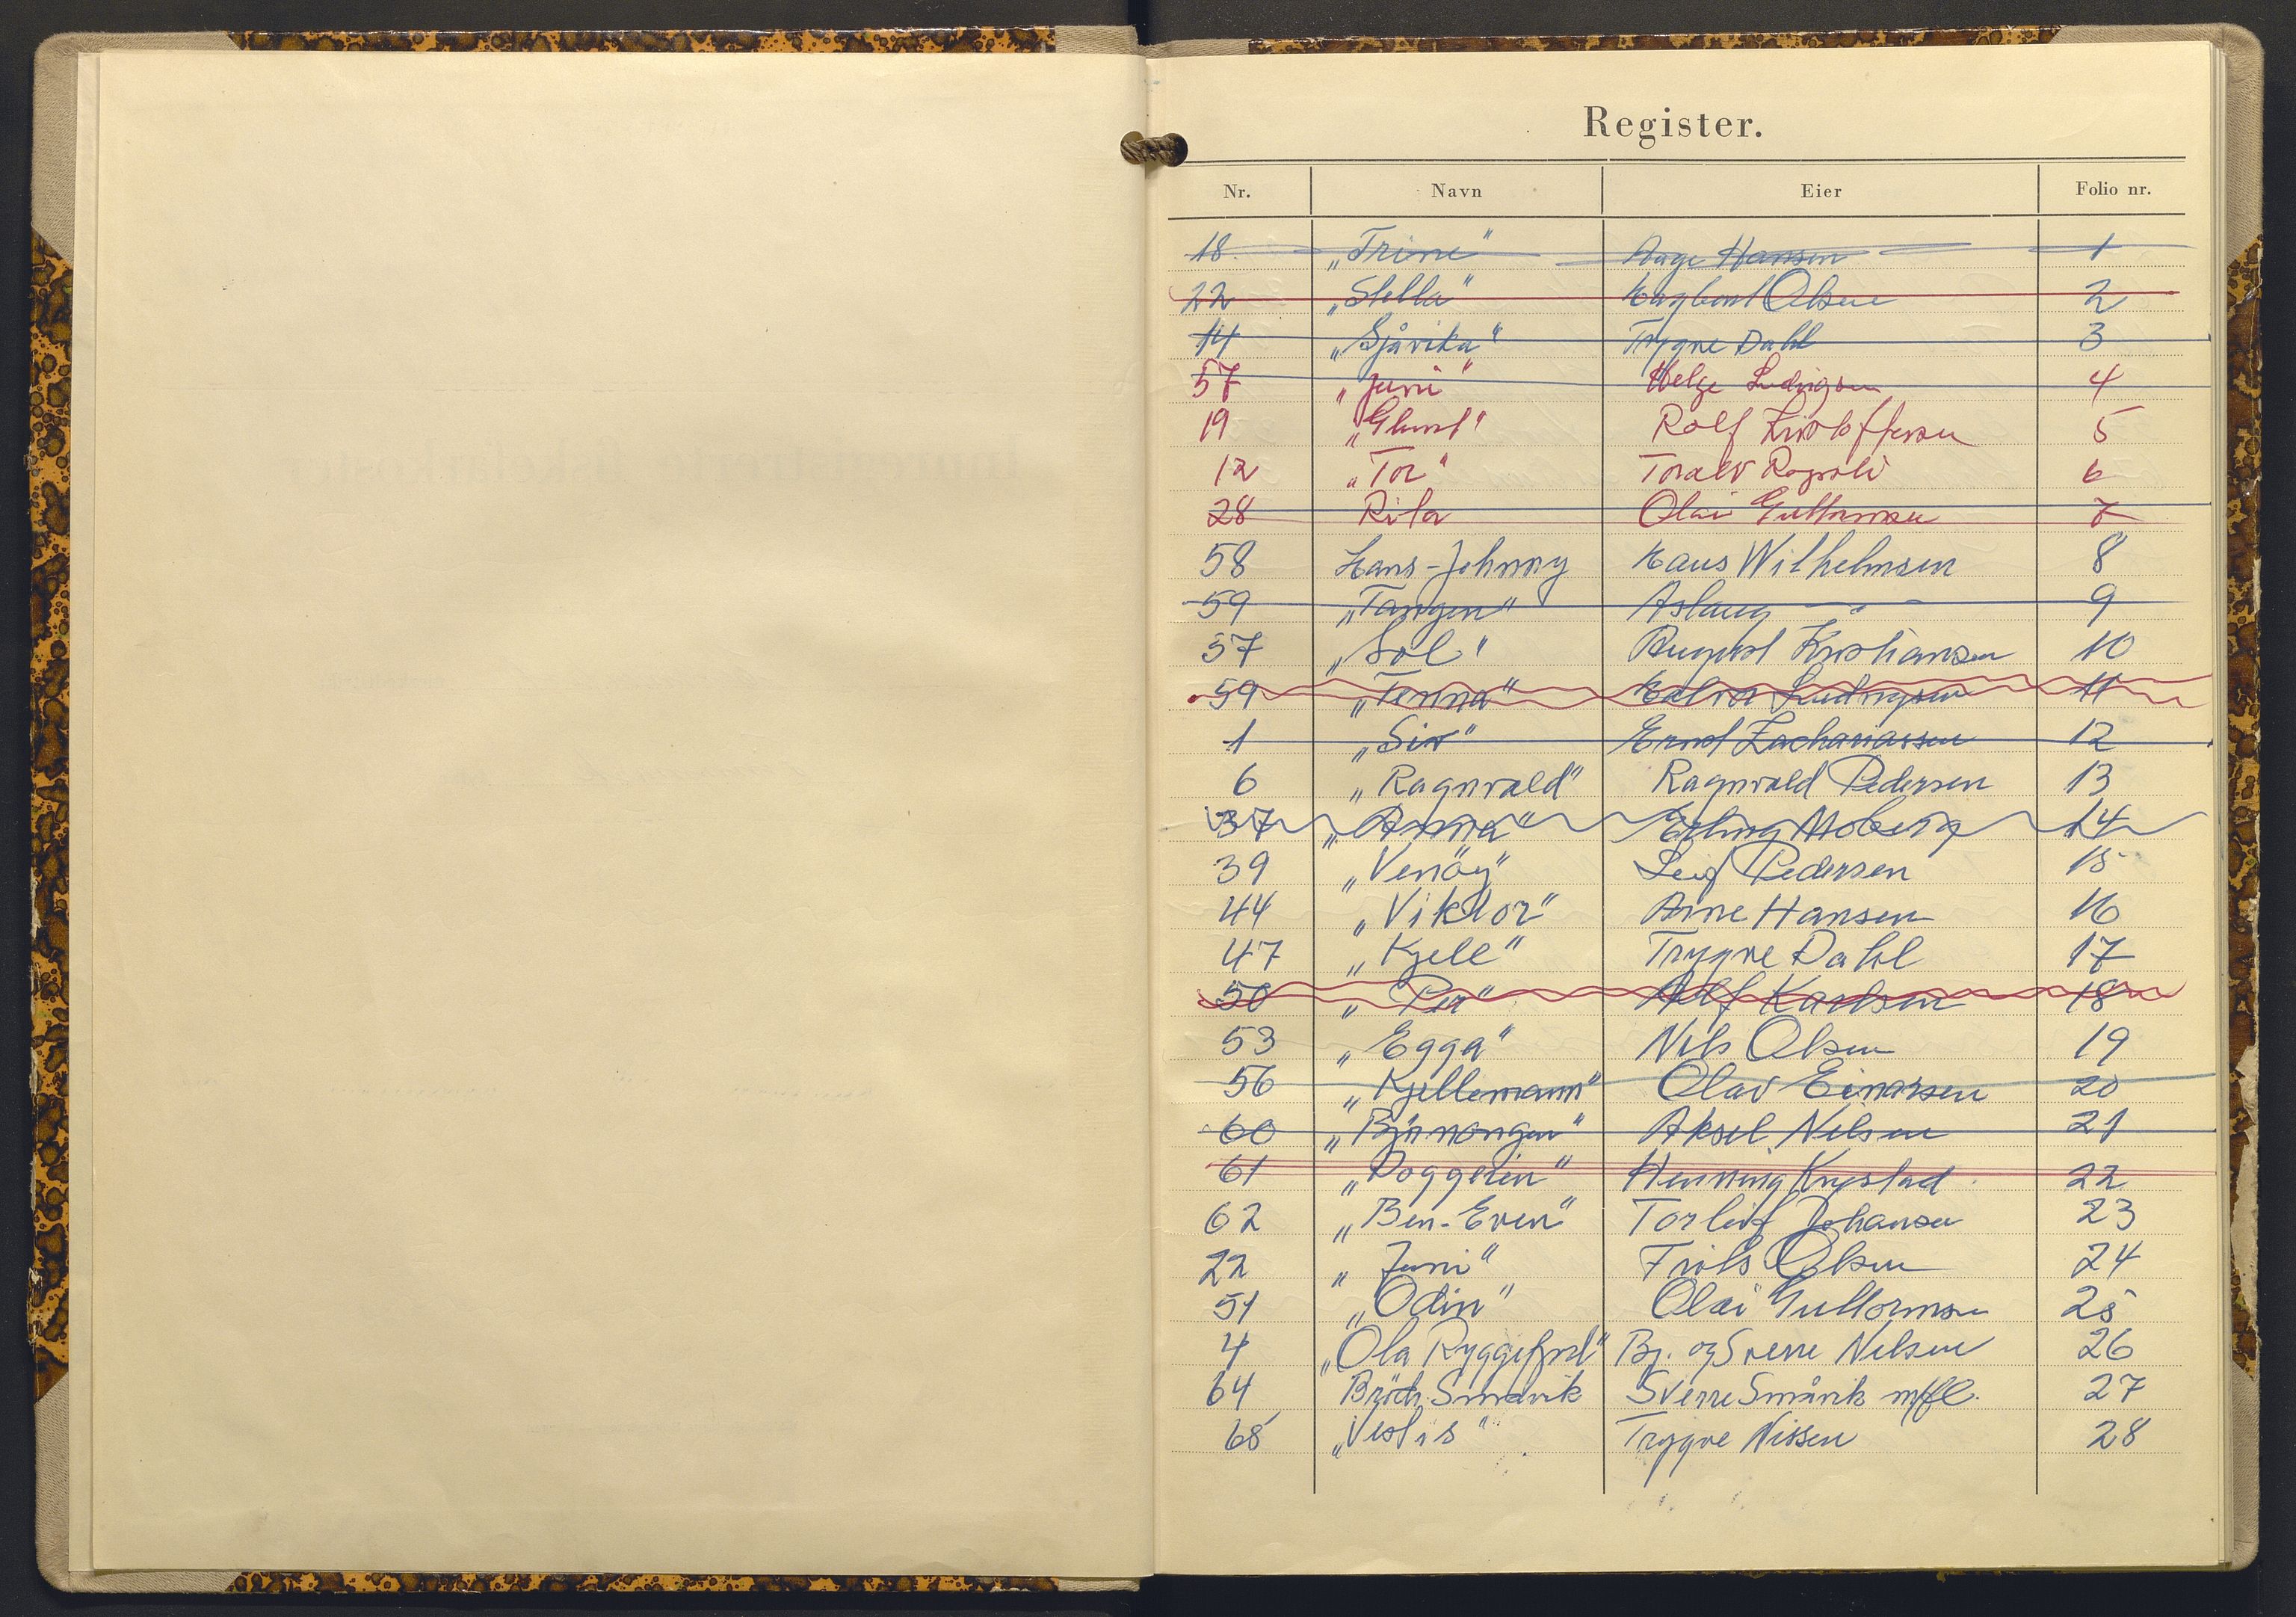 Register.
Nr. Navn Eier Folio nr.
18. „Trine" Aage Hansen 1
22 „Stella" Olsen 2
14 „Sjåvika" Trygve Dahl 3
57 „Juni" Helge Ludvigsen 4
19 „Glimt" Rolf Kristoffersen 5
12 „Tor" Toralv 6
28 Rita Olai Guttormsen 7
58 Hans-Johnny Hans Wilhelmsen 8
59 „Tangen" Aslaug — " — 9
57 „Sol" August Kristiansen 10
59 „Tenna" Ludvigsen 11
1 „Siv" Ernst Zachariassen 12
6 „Ragnvald" Ragnvald Pedersen 13
37 „Anna" Erling Moberg 14
39 „Venöy" Leif Pedersen 15
44 „Viktor" Arne Hansen 16
47 „Kjell" Trygve Dahl 17
50 „Per" Alf Karlsen 18
53 „Egga" Nils Olsen 19
56 „Kjellemann" Olav Einarsen 20
60 „Bjørnungen" Aksel Nilsen 21
61 „Doggerin" Henning Krystad 22
62 „Ben-Even" Torleif Johansen 23
22 „Juni" Olsen 24
51 „Odin" Olai Guttormsen 25
4 „Ola Ryggefjord" Bj. og Sverre Nilsen 26
64 Brödr. Småvik Sverre Småvik m/fl. 27
68 „Veslis" Trygve Nissen 28